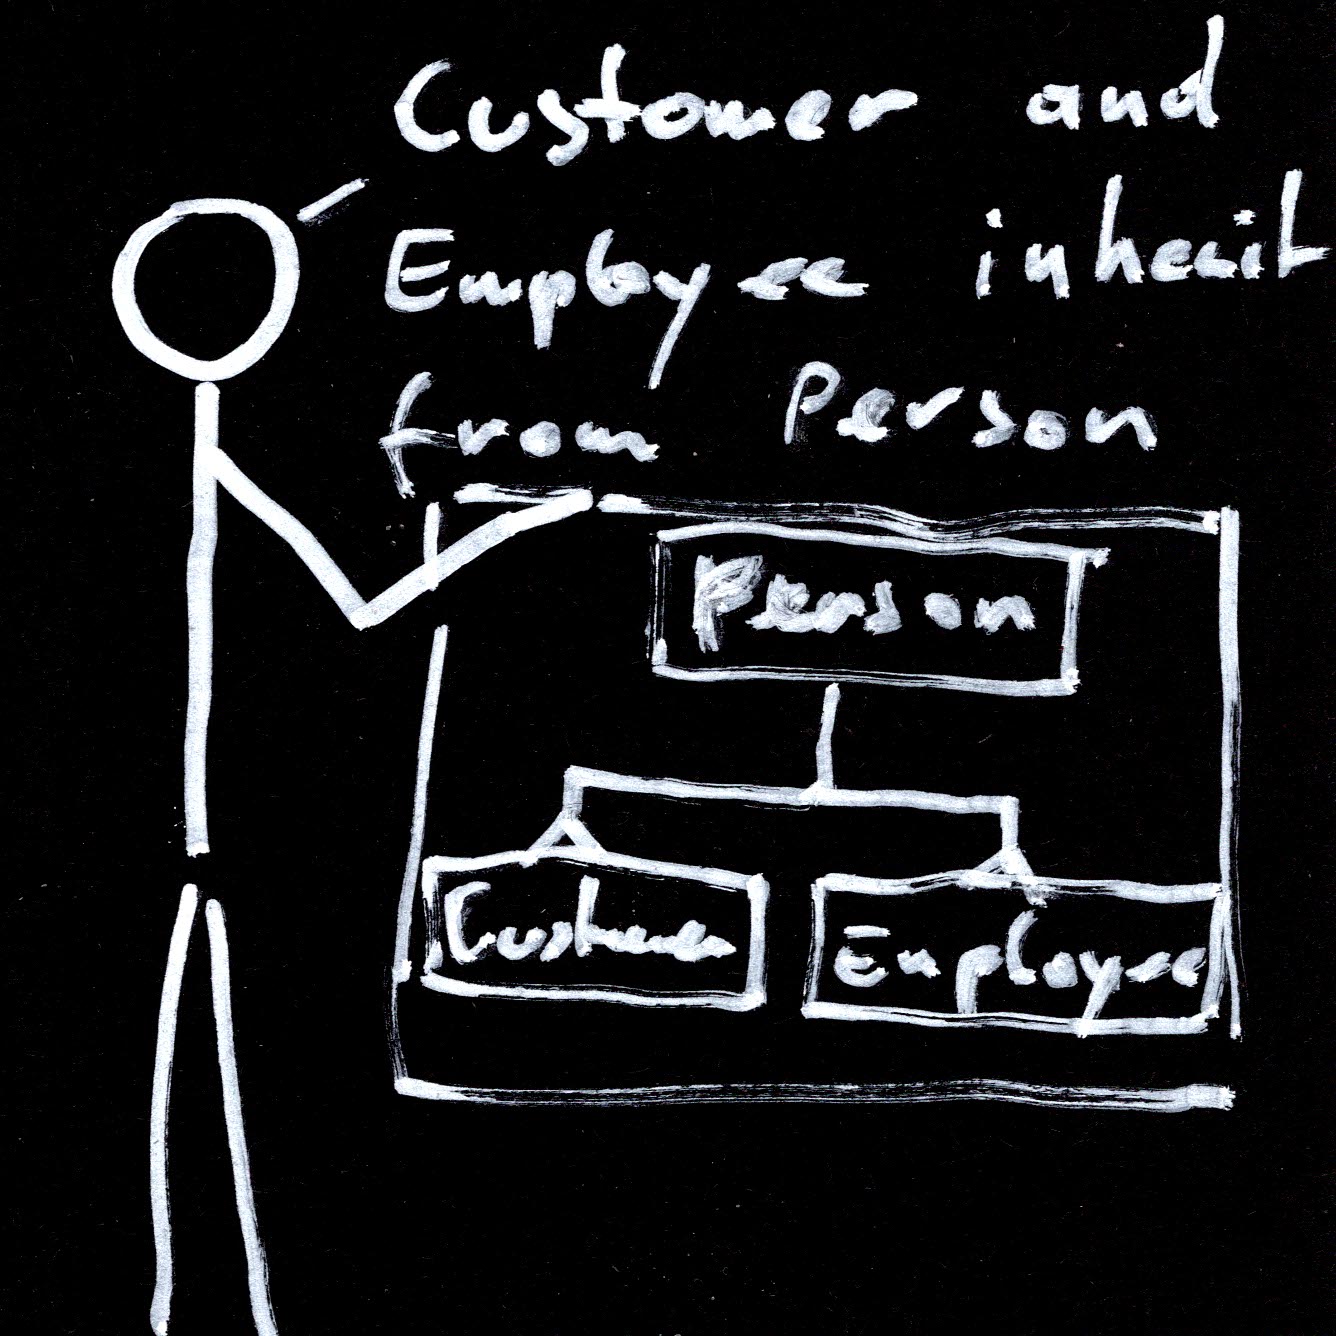 Customer and
Employee inherit
from Person
Person
Customer
Employee